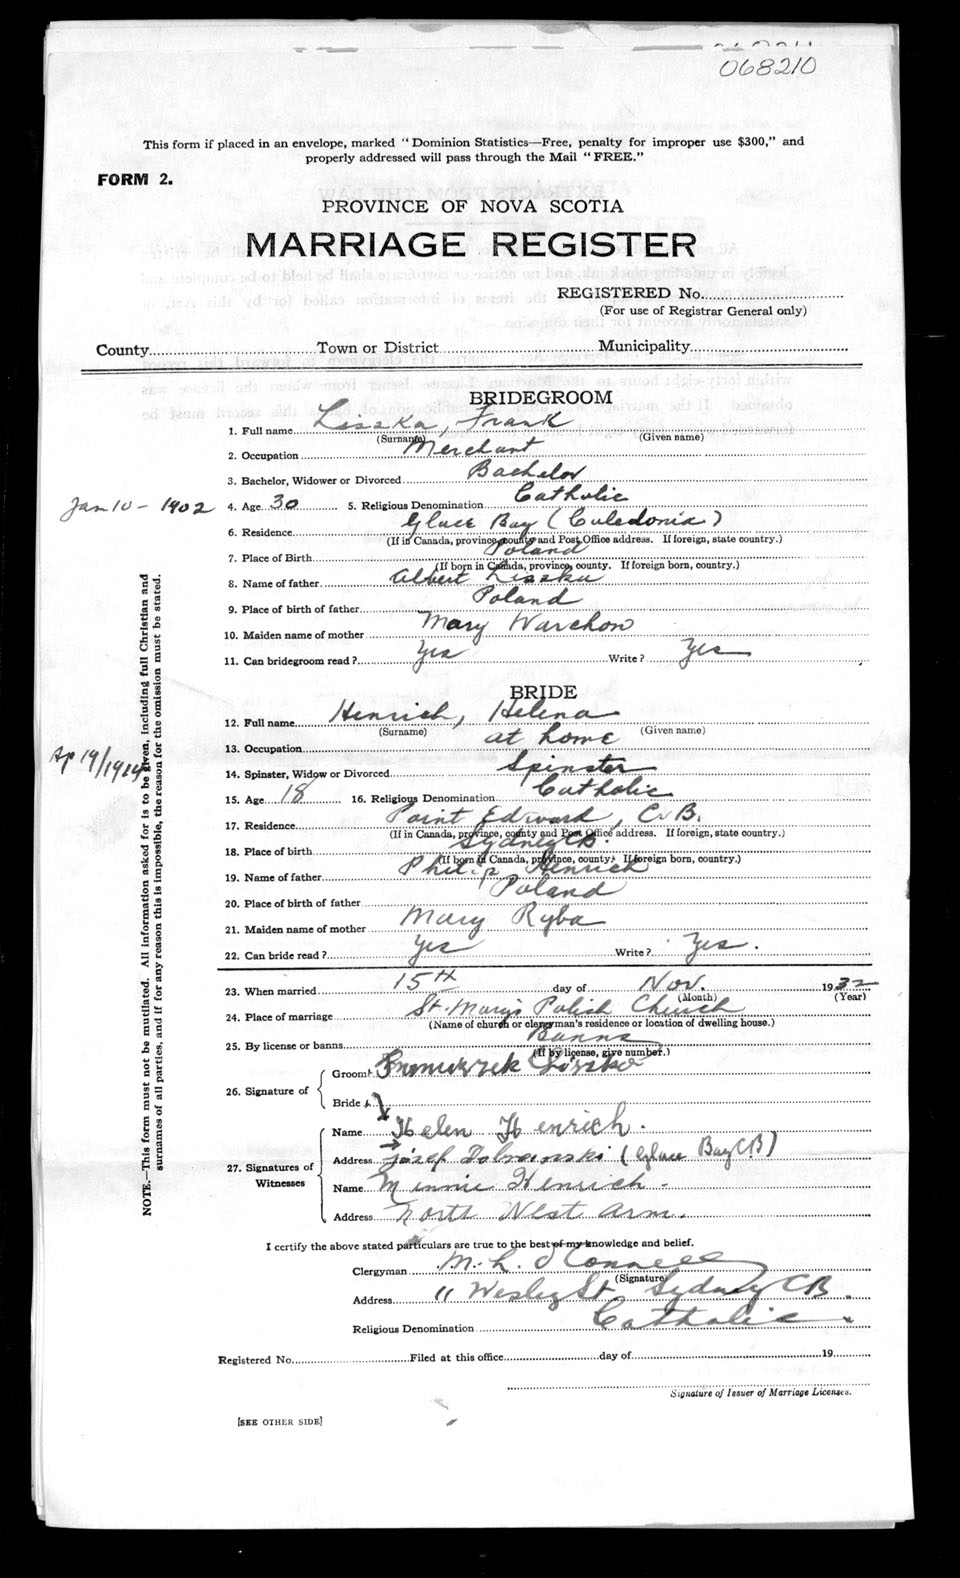 068210
This form if placed in an envelope, marked "Dominion Statistics—Free, penalty for improper use $300," and
properly addressed will pass through the Mail "FREE."
FORM 2.
PROVINCE OF NOVA SCOTIA
MARRIAGE REGISTER
REGISTERED No.
(For use of Registrar General only)
County Town or District Municipality
BRIDEGROOM
1. Full name Liszka, Frank
(Surname) (Given name)
2. Occupation Merchant
3. Bachelor, Widower or Divorced Bachelor
Jan 10 - 1902 4. Age 30 5. Religious Denomination Catholic
6. Residence Glace Bay (Caledonia)
(If in Canada, province, county and Post Office address. If foreign, state country.)
7. Place of Birth Poland
(If born in Canada, province, county. If foreign born, country.)
8. Name of father Albert Liszka
9. Place of birth of father Poland
10. Maiden name of mother Mary Warchon
11. Can bridegroom read? Yes Write? Yes
BRIDE
12. Full name Henrich, Helena
(Surname) (Given name)
13. Occupation at home
Ap 19/1914
14. Spinster, Widow or Divorced Spinster
15. Age 18 16. Religious Denomination Catholic
17. Residence Point Edward, C.B.
(If in Canada, province, county and Post Office address. If foreign, state country.)
18. Place of birth Sydney C.B.
(If born in Canada, province, county. If foreign born, country.)
19. Name of father Philip Henrich
20. Place of birth of father Poland
21. Maiden name of mother Mary Ryba
22. Can bride read? Yes Write? Yes.
23. When married 15th day of Nov. 1932
(Month) (Year)
24. Place of marriage St. Mary's Polish Church
(Name of church or clergyman's residence or location of dwelling house.)
25. By license or banns Banns
(If by license, give number.)
26. Signature of
Groom
Bride
27. Signatures of
Witnesses
Name Helen Henrich.
Address Józef (Glace Bay C.B)
Name Minnie Henrich -
Address North West Arm.
I certify the above stated particulars are true to the best of my knowledge and belief.
Clergyman M. L. O'Connell
(Signature)
Address 11 Wesley St. Sydney CB.
Religious Denomination Catholic.
Registered No. Filed at this office day of 19
Signature of Issuer of Marriage Licenses.
[SEE OTHER SIDE]
NOTE.—This form must not be mutilated. All information asked for is to be given, including full Christian and
surnames of all parties, and if for any reason this is impossible, the reason for the omission must be stated.